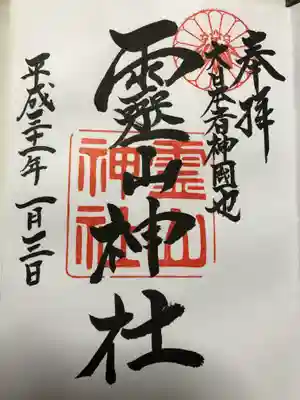 奉拝
大日本者神國也
靈山神社
霊山
神社
平成三十一年一月三日